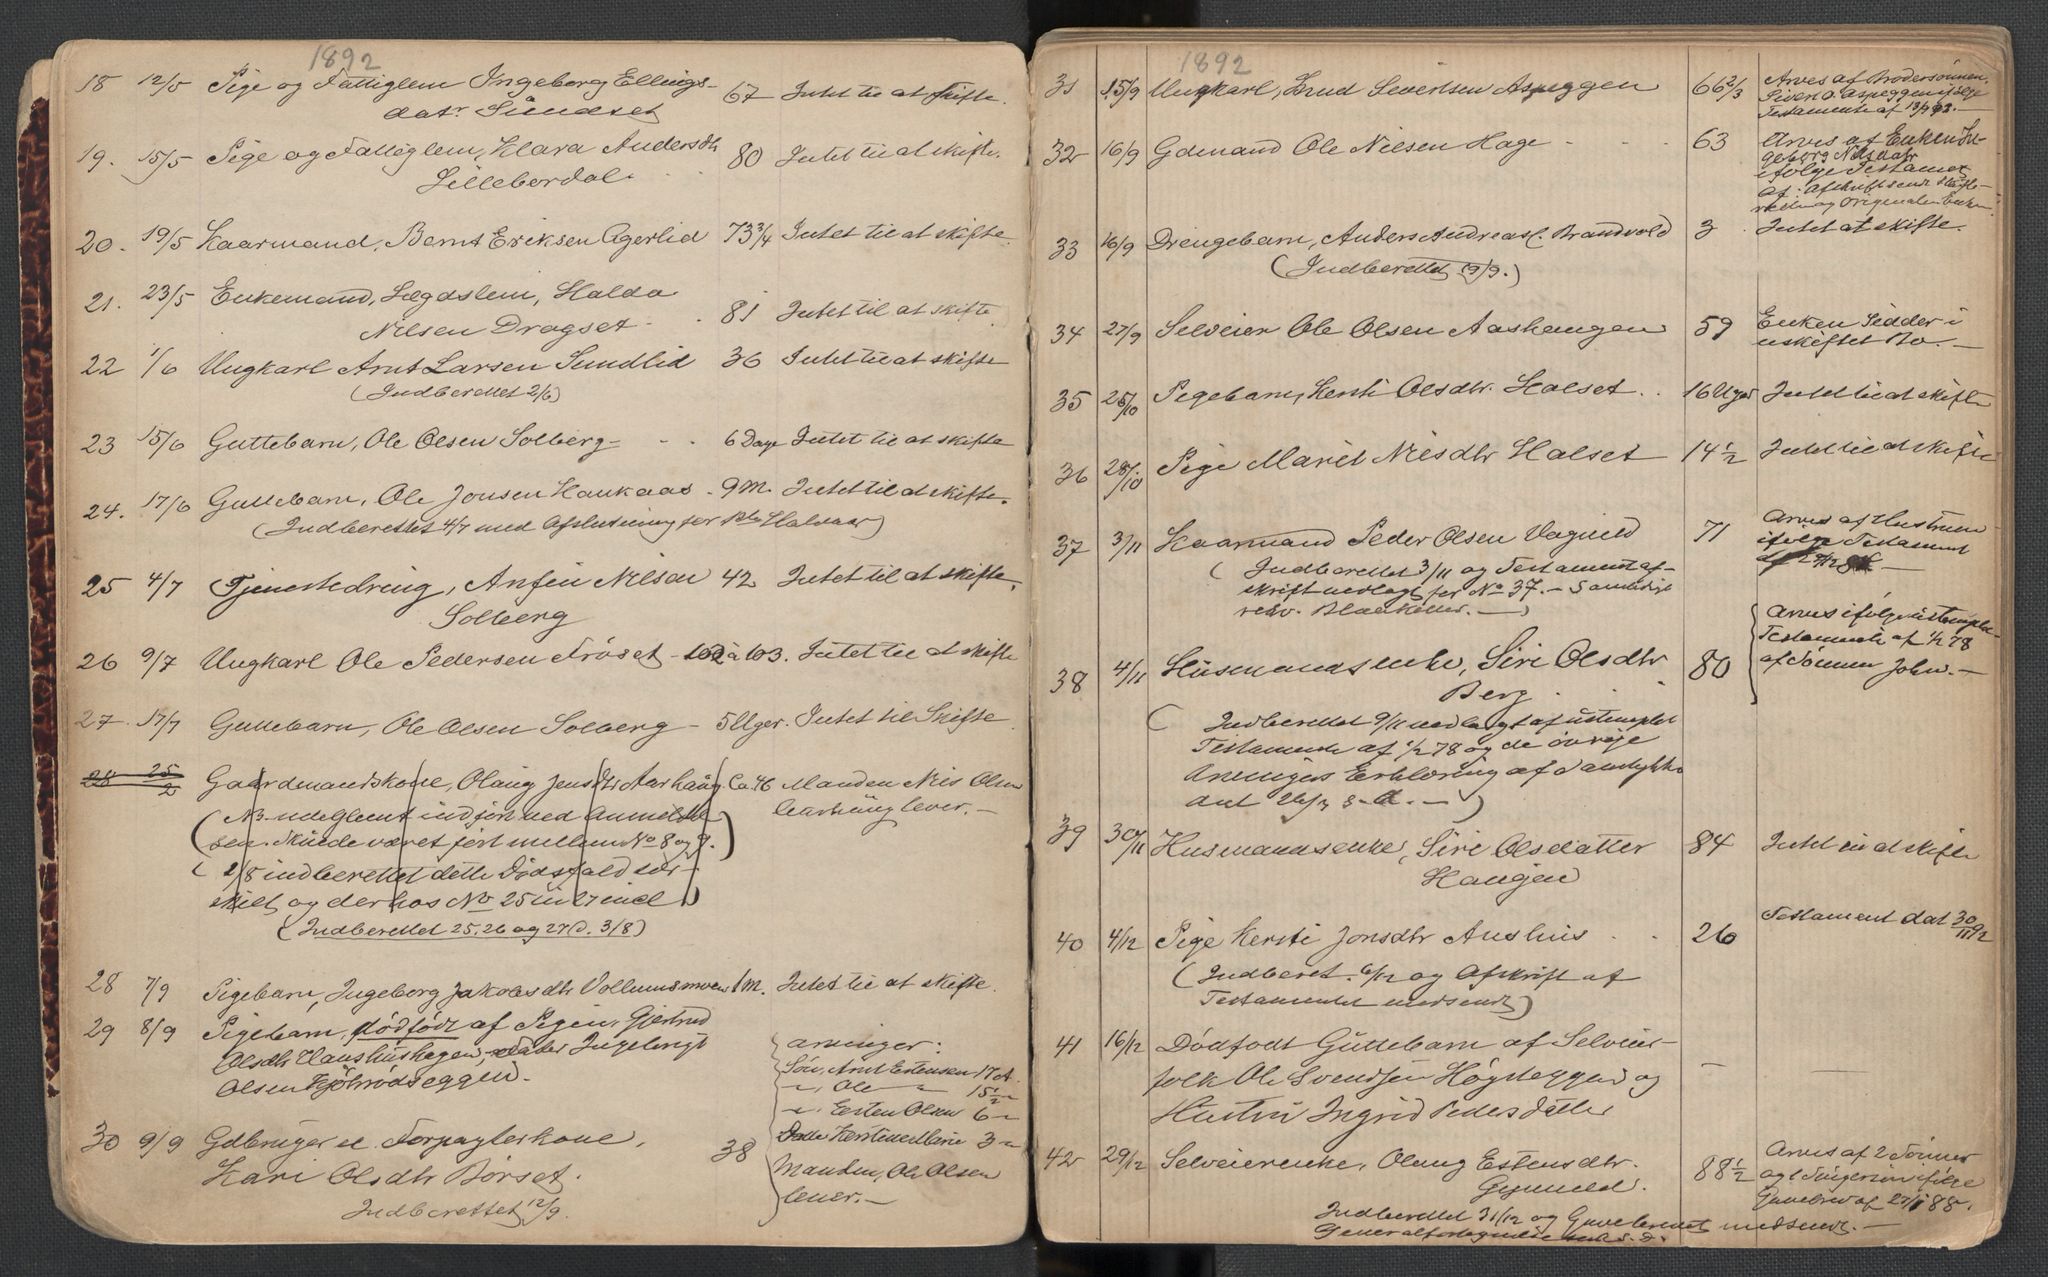 1892
18 12/5 Pige og Fattiglem Ingeborg Ellings- 67 Intet til at skifte.
datr Sundset
19. 15/5 Pige og Fattiglem, Klara Andersdtr 80 Intet til at skifte.
Lillebordal.
20. 19/5 Kaarmand, Bernt Eriksen Agerlid 73 3/4 Intet til at skifte.
21. 23/5 Enkemand, Lægdslem, Haldo
Nilsen Dragset 81 Intet til at skifte
22 1/6 Ungkarl Arnt Larsen Sundlid 36 Intet til at skifte
(Indberettet 2/6)
23 15/6 Guttebarn, Ole Olsen Solberg 6 Dage Intet til at skifte
24. 17/6 Guttebarn, Ole Jonsen Haukaas 9 M. Intet til at skifte.
(Indberettet 4/7 med Afslutning for
25 4/7 Tjenestedreng, Anfin Nilsen 42 Intet til at skifte.
Solberg
26 9/7 Ungkarl Ole Pedersen Frøset 102 à 103. Intet til at skifte
27. 17/7 Guttebarn, Ole Olsen Solberg 5 Uger. Intet til Skifte
28 25/2 Gaardmandskone, Olaug Jensdtr Aarhaug. Ca. 46 Manden Nils Olsen
Aarhaug lever.
(NB. udeglemt indført ved Anmeldel-
sen. Skulde været ført mellem No 8 og 9.)
(2/8 indberettet dette Dødsfald sær-
skilt og derhos No 25 til 27 incl)
(Indberettet 25, 26 og 27 d. 3/8)
28 7/9 Pigebarn, Ingeborg Jakobsdtr Vollumsmoen 1 M. Intet til at skifte.
29 8/9 Pigebarn, dødfødt af Pigen Gjertrud
Olsdtr Haushushagen Fader Ingebrigt
Olsen Kjølrødseggen.
Arvinger:
Søn, Arnt Estensen 17 A
" Ole " 15 1/2 "
" Esten Olsen 6 "
30 9/9 Gdbruger el. Forpagterkone, 38 Datter Kerstine Marie 3 "
Kari Olsdtr Børset. Manden, Ole Olsen
lever.
Indberettet 12/9.
1892
31 15/9 Ungkarl, Knud Sivertsen Aspeggen 66 2/3 Arves af Brodersønnen,
Sivert O. Aspeggen ifølge
Testamente af
32 16/9 Gdmand Ole Nilsen Hage 63 Arves af Enken In-
geborg Nilsdtr
ifølge Testament
af. Afskrift sendt Skifte-
retten og Originalen Enken.
33 16/9 Drengebarn, Anders Andreas. Brandvold 3 Intet at skifte.
(Indberettet 19/9.)
34 27/9 Selveier Ole Olsen Aashaugen 59 Enken sidder i
uskiftet Bo.
35 25/10 Pigebarn, Kersti Olsdtr. Halset 16 Uger Intet til at skifte
36 28/10 Pige Marit Nilsdtr Halset 14 1/2 Intet til at skifte
37 3/11 Kaarmand Peder Olsen Vognild 71 Arves af Hustruen
ifølge Testament
(Indberettet 3/11 og Testamentaf-
skrift vedlagt for No 37. - Samtidig
rekv. Blanketter.)
38 4/11 Husmandsenke, Siri Olsdtr 80 Arves ifølge ustemplet
Testamente af 1/2 78
af Sønnen John.
Berg
(Indberettet 9/11 vedlagt af ustemplet
Testamente af 1/2 78 og de øvrige
Arvingers Erklæring af Samtykke
39 30/11 Husmandsenke, Siri Olsdatter 84 Intet til at skifte
Haugen
40 4/12 Pige Kersti Jonsdtr Aushus 26 Testament dat 30/11 92
(Indberet. 6/12 og Afskrift af
Testamentet medsendt)
41 16/12 Dødfødt Guttebarn af Selveier-
folk Ole Svendsen Høgseggen og
Hustru Ingrid Pedersdatter
42 29/12 Selveierenke, Olaug Estensdtr. 88 1/2 Arves af 2 Sønner
Gjenild. og 1 Svigersøn ifølge
Gavebrev af
Indberettet 31/12 og Gavebrevet medsendt.
Generalfortegnelse